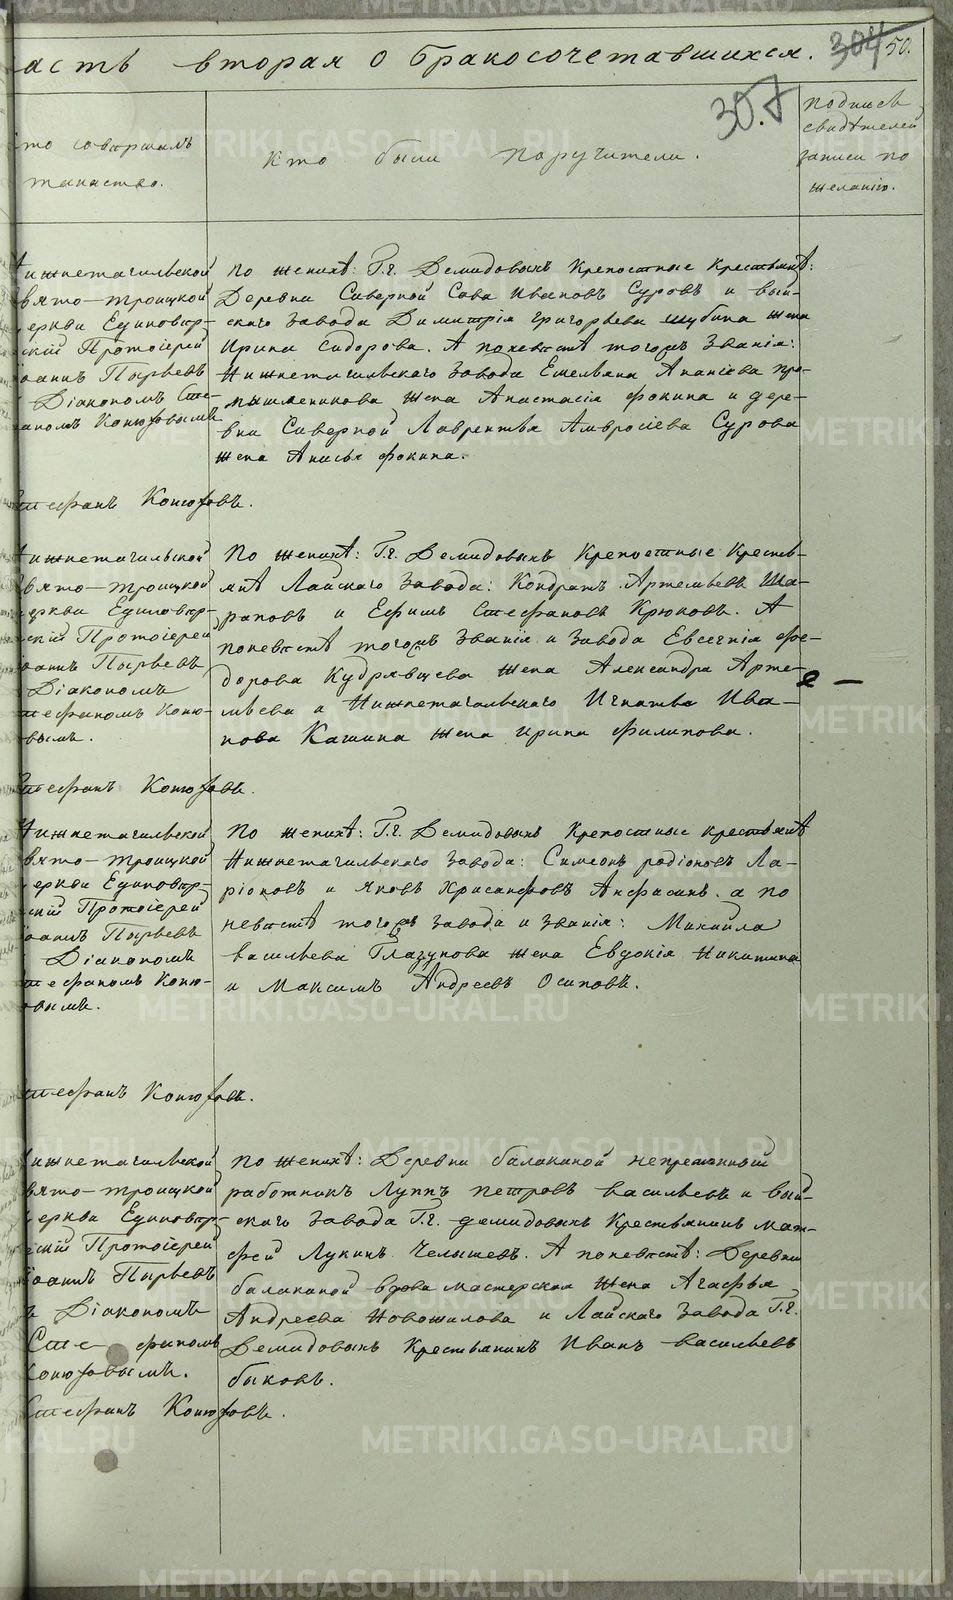 асть вторая о бракосочетавшихся. 304 50.
307
то совершалъ
таинство.
Кто были поручители.
Подпись
свидѣтелей
записи по
желанію.
ижнетагильской
вято-троицкой
еркви Единовѣр-
скій Протоіерей
оаннъ Пырьевъ
Діакономъ Сте-
фаномъ Конюховымъ
По женихѣ: Г.г. Демидовыхъ Крепостные Крестьянѣ:
Деревни Северной Сава Ивановъ Суровъ и вый-
скаго завода Димитрія григорьева шубина жена
Ирина Сидорова. А поневѣстѣ тогожъ Званія:
Нижнетагильскаго Завода Емельяна Ананіева про-
мышленикова жена Анастасія фокина и дере-
вни Северной Лаврентья Амвросіева Сурова
жена Анисья фокина.
тефанъ Конюховъ.
ижнетагильской
вято-троицкой
еркви Единовѣр-
скій Протоіерей
оаннъ Пырьевъ
Діакономъ
тефаномъ Коню-
овымъ.
По женихѣ: Г.г. Демидовыхъ Крепостные Кресть-
янѣ Лайскаго Завода: Кондратъ Артемьевъ Ша-
раповъ и Ефимъ Стефановъ Крюковъ. А
поневѣстѣ тогожъ Званія и Завода Евсегнія фео-
дорова Кудрявцева жена Александра Арте-
мьева а Нижнетагильскаго Игнатья Ива-
нова Кашина жена ирина филипова.
тефанъ Конюховъ.
ижнетагильской
вято-троицкой
еркви Единовѣр-
скій Протоіерей
оаннъ Пырьевъ
Діакономъ
тефаномъ Коню-
овымъ.
По женихѣ: Г.г. Демидовыхъ Крепостные крестьянѣ
Нижнетагильскаго Завода: Симеонъ родіоновъ Ла-
ріоновъ и Яковъ Хрисанфовъ Анфасинъ. а по
невѣстѣ тогожъ Завода и Званія: Михайла
васильева Глазунова жена Евдокія Никитина
и Максимъ Андреевъ Осиповъ.
тефанъ Конюховъ.
ижнетагильской
вято-троицкой
еркви Единовѣр-
скій Протоіерей
оаннъ Пырьевъ
ъ Діакономъ
Сте-фаномъ
Конюховымъ.
По женихѣ: Деревни балакиной непремѣнный
работникъ Луппъ петровъ васильевъ и вый-
скаго Завода Г.г. демидовыхъ Крестьянинъ мат-
фей Лукинъ Челышевъ. А поневѣстѣ: Деревни
балакиной вдова мастерская жена Агафья
Андреева Новожилова и Лайскаго Завода Г.г.
Демидовыхъ Крестьянинъ Иванъ васильевъ
быковъ.
Стефанъ Конюховъ.